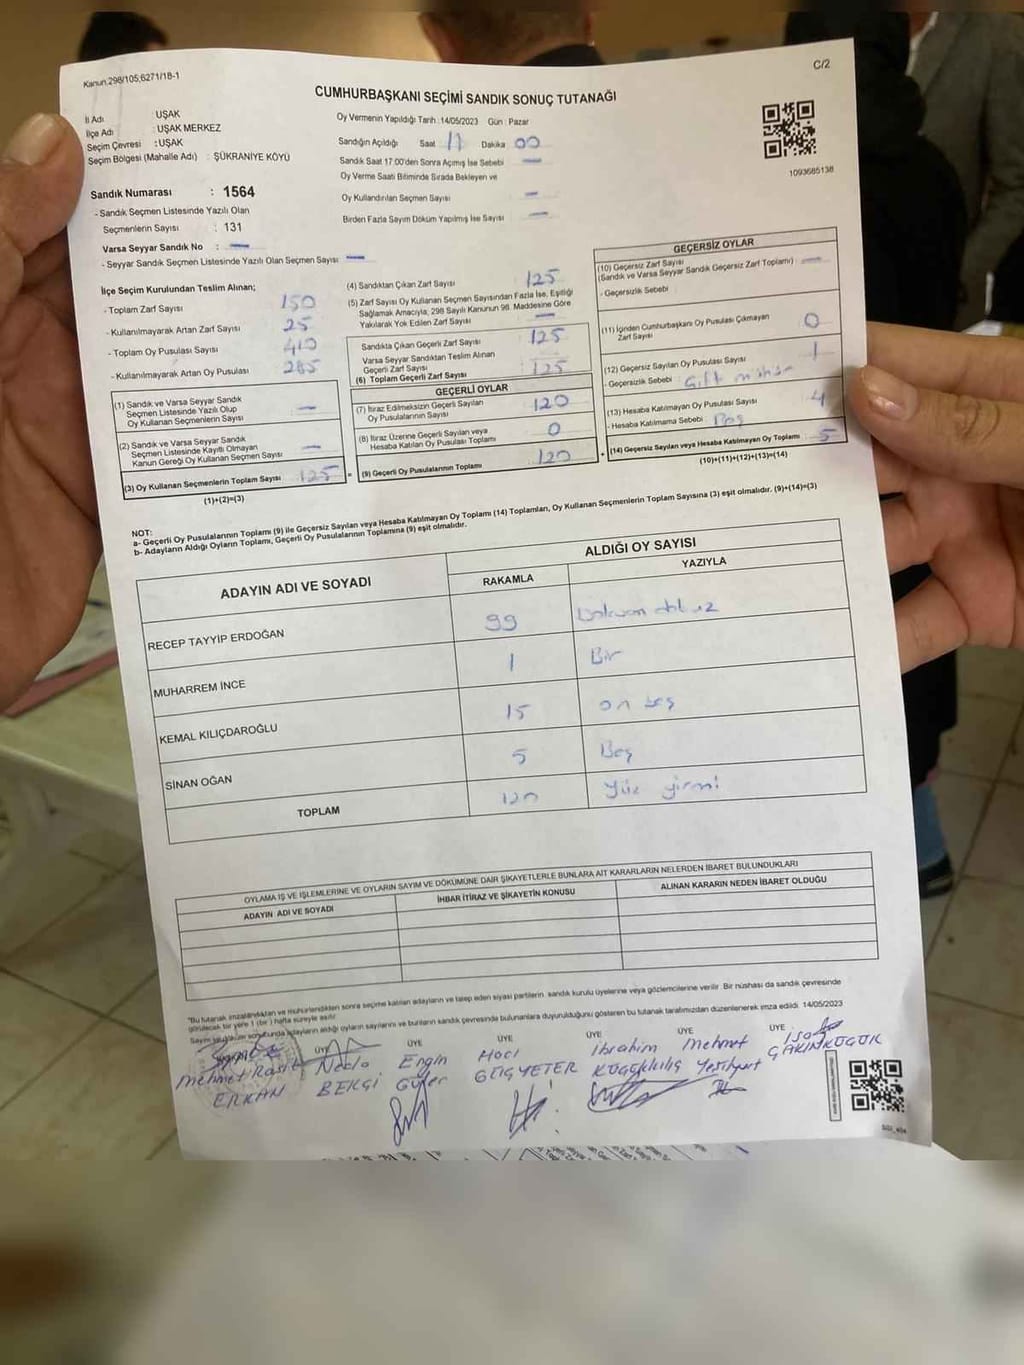 Kanun.298/105;6271/18-1
C/2
CUMHURBAŞKANI SEÇİMİ SANDIK SONUÇ TUTANAĞI
İl Adı UŞAK
İlçe Adı : UŞAK MERKEZ
Seçim Çevresi : UŞAK
Seçim Bölgesi (Mahalle Adı) : ŞÜKRANİYE KÖYÜ
Sandık Numarası : 1564
- Sandık Seçmen Listesinde Yazılı Olan
Seçmenlerin Sayısı : 131
Varsa Seyyar Sandık No : —
- Seyyar Sandık Seçmen Listesinde Yazılı Olan Seçmen Sayısı —
Oy Vermenin Yapıldığı Tarih :14/05/2023 Gün : Pazar
Sandığın Açıldığı Saat 17 Dakika 00
Sandık Saat 17:00'den Sonra Açımış İse Sebebi —
Oy Verme Saati Bitiminde Sırada Bekleyen ve
Oy Kullandırılan Seçmen Sayısı —
Birden Fazla Sayım Döküm Yapılmış İse Sayısı —
1093685138
İlçe Seçim Kurulundan Teslim Alınan;
- Toplam Zarf Sayısı 150
- Kullanılmayarak Artan Zarf Sayısı 25
- Toplam Oy Pusulası Sayısı 410
- Kullanılmayarak Artan Oy Pusulası 285
(1) Sandık ve Varsa Seyyar Sandık
Seçmen Listesinde Yazılı Olup
Oy Kullanan Seçmenlerin Sayısı —
(2) Sandık ve Varsa Seyyar Sandık
Seçmen Listesinde Kayıtlı Olmayan
Kanun Gereği Oy Kullanan Seçmen Sayısı —
(3) Oy Kullanan Seçmenlerin Toplam Sayısı 125
(1)+(2)=(3)
(4) Sandıktan Çıkan Zarf Sayısı 125
(5) Zarf Sayısı Oy Kullanan Seçmen Sayısından Fazla İse, Eşitliği
Sağlamak Amacıyla, 298 Sayılı Kanunun 98. Maddesine Göre
Yakılarak Yok Edilen Zarf Sayısı —
Sandıkta Çıkan Geçerli Zarf Sayısı 125
Varsa Seyyar Sandıktan Teslim Alınan
Geçerli Zarf Sayısı
(6) Toplam Geçerli Zarf Sayısı 125
GEÇERLİ OYLAR
(7) İtiraz Edilmeksizin Geçerli Sayılan
Oy Pusulalarının Sayısı 120
(8) İtiraz Üzerine Geçerli Sayılan veya
Hesaba Katılan Oy Pusulası Toplamı 0
= (9) Geçerli Oy Pusulalarının Toplamı 120
GEÇERSİZ OYLAR
(10) Geçersiz Zarf Sayısı
(Sandık ve Varsa Seyyar Sandık Geçersiz Zarf Toplamı) —
- Geçersizlik Sebebi
(11) İçinden Cumhurbaşkanı Oy Pusulası Çıkmayan
Zarf Sayısı 0
(12) Geçersiz Sayılan Oy Pusulası Sayısı 1
- Geçersizlik Sebebi Çift mühür
(13) Hesaba Katılmayan Oy Pusulası Sayısı 4
- Hesaba Katılmama Sebebi : Boş
+ (14) Geçersiz Sayılan veya Hesaba Katılmayan Oy Toplamı 5
(10)+(11)+(12)+(13)=(14)
NOT:
a- Geçerli Oy Pusulalarının Toplamı (9) ile Geçersiz Sayılan veya Hesaba Katılmayan Oy Toplamı (14) Toplamları, Oy Kullanan Seçmenlerin Toplam Sayısına (3) eşit olmalıdır. (9)+(14)=(3)
b- Adayların Aldığı Oyların Toplamı, Geçerli Oy Pusulalarının Toplamına (9) eşit olmalıdır.
ADAYIN ADI VE SOYADI ALDIĞI OY SAYISI
RAKAMLA YAZIYLA
RECEP TAYYİP ERDOĞAN 99 Doksan dokuz
MUHARREM İNCE 1 Bir
KEMAL KILIÇDAROĞLU 15 on beş
SİNAN OĞAN 5 Beş
TOPLAM 120 Yüz yirmi
OYLAMA İŞ VE İŞLEMLERİNE VE OYLARIN SAYIM VE DÖKÜMÜNE DAİR ŞİKAYETLERLE BUNLARA AİT KARARLARIN NELERDEN İBARET BULUNDUKLARI
ADAYIN ADI VE SOYADI İHBAR İTİRAZ VE ŞİKAYETİN KONUSU ALINAN KARARIN NEDEN İBARET OLDUĞU
"Bu tutanak imzalandıktan ve mühürlendikten sonra seçime katılan adayların ve talep eden siyasi partilerin sandık kurulu üyelerine veya gözlemcilerine verilir. Bir nüshası da sandık çevresinde
görülecek bir yere 1 (bir) hafta süreyle asılır.
Sayım sonucunda adayların aldığı oyların sayılarını ve bunların sandık çevresinde bulunanlara duyurulduğunu gösteren bu tutanak tarafımızdan düzenlenerek imza edildi. 14/05/2023
ÜYE ÜYE ÜYE ÜYE ÜYE ÜYE
Mehmet Raşit Necla Engin Hacı İbrahim Mehmet
ERKAN BERGİ Güler Yeşilyurt